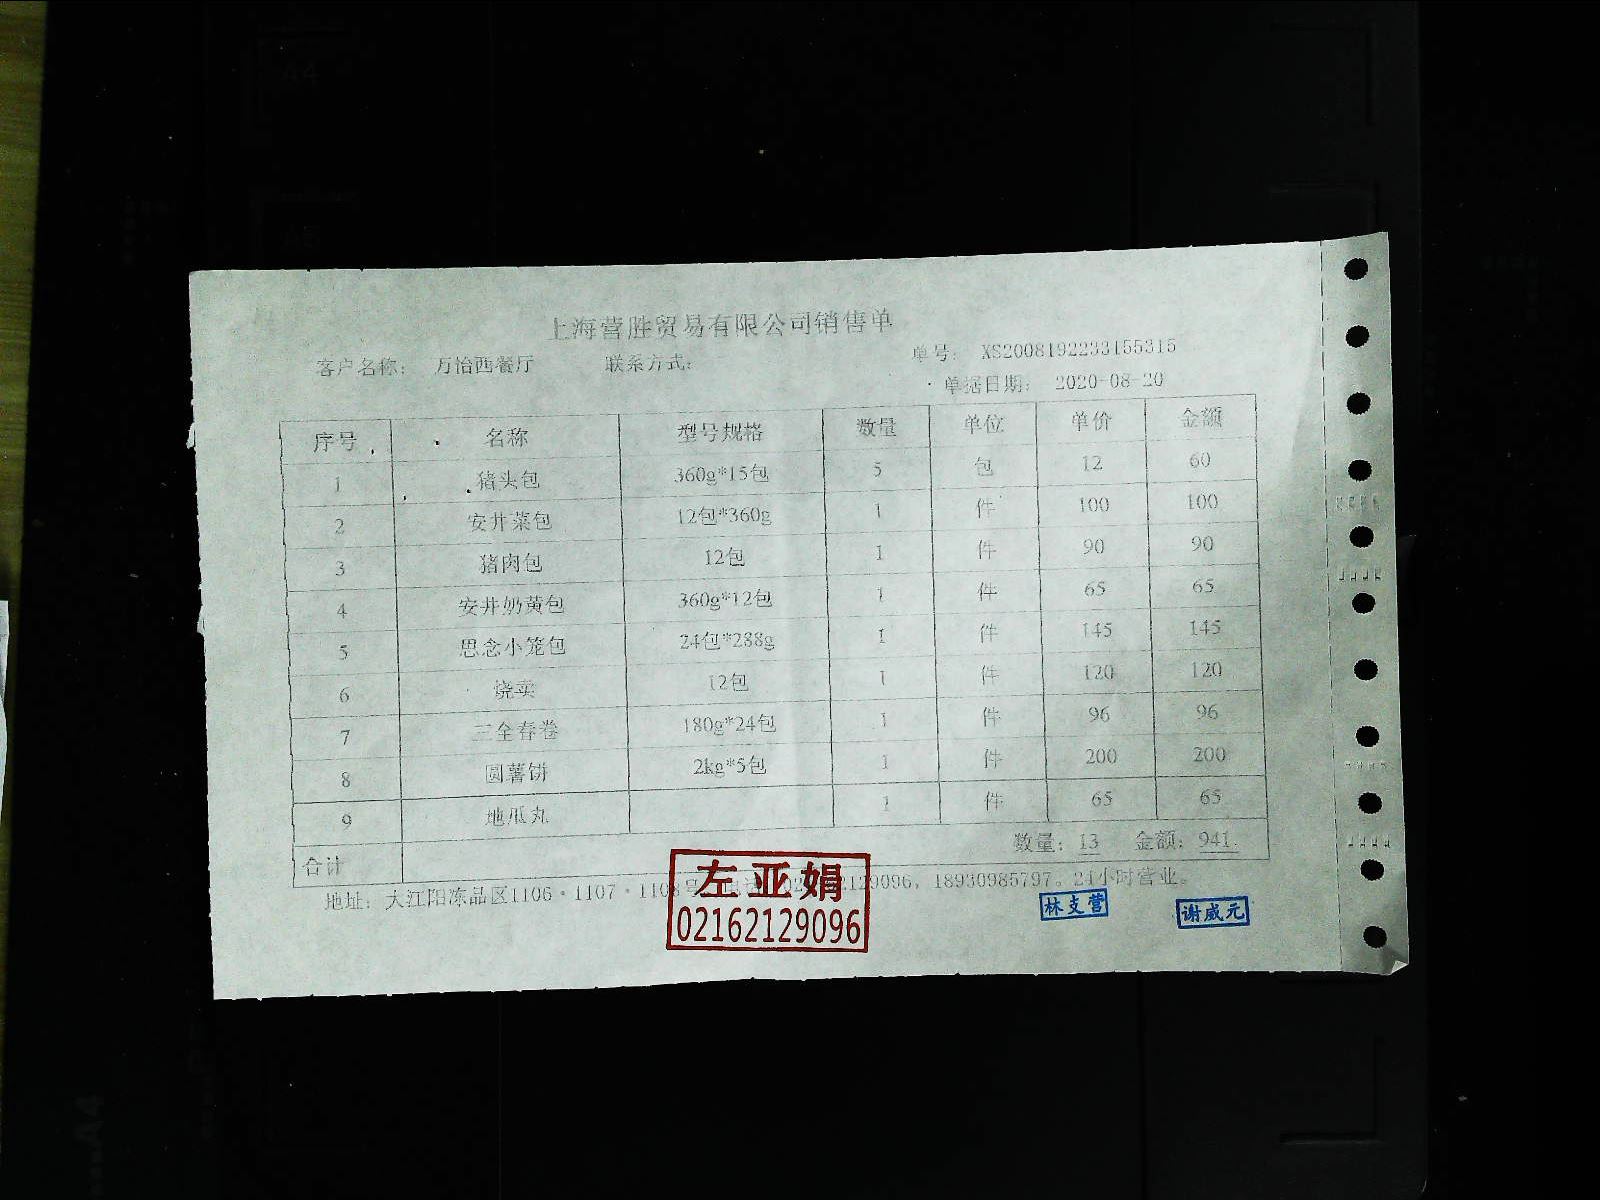 上海营胜贸易有限公司销售单
客户名称： 万怡西餐厅 联系方式： 单号： XS2008192233155315
单据日期： 2020-08-20
序号 名称 型号规格 数量 单位 单价 金额
1 猪头包 360g*15包 5 包 12 60
2 安井菜包 12包*360g 1 件 100 100
3 猪肉包 12包 1 件 90 90
4 安井奶黄包 360g*12包 1 件 65 65
5 思念小笼包 24包*288g 1 件 145 145
6 烧卖 12包 1 件 120 120
7 三全春卷 180g*24包 1 件 96 96
8 圆薯饼 2kg*5包 1 件 200 200
9 地瓜丸 1 件 65 65
合计 数量：13 金额：941
地址： 大江阳冻品区1106·1107·1108号 电话 02162129096，18930985797。24小时营业。
左亚娟
02162129096
林支营
谢威元
A4